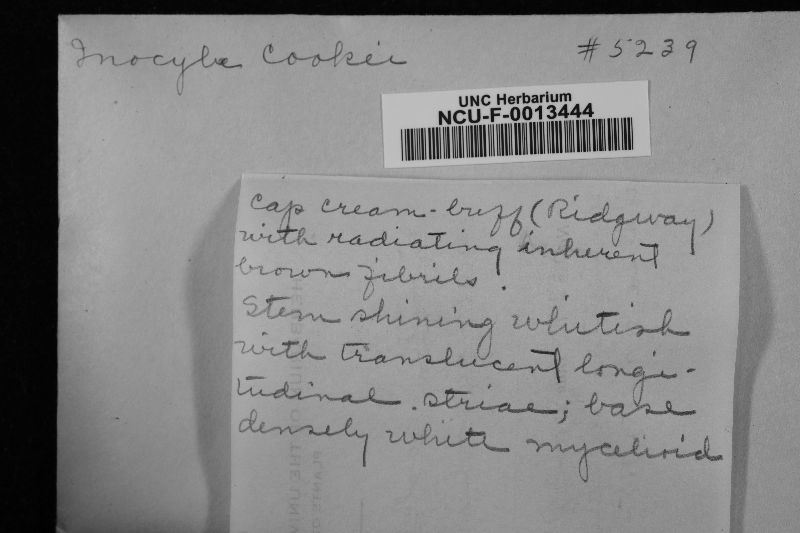 Inocybe Cookei #5239
UNC Herbarium
NCU-F-0013444
Cap cream-buff (Ridgway)
with radiating inherent
brown fibrils.
Stem shining whitish
with translucent longi-
tudinal striae; base
densely white mycelioid